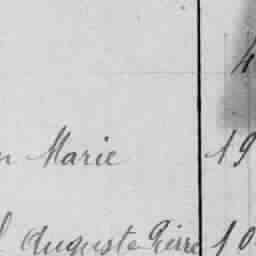 4
n Marie 19
l Auguste Pierre 10